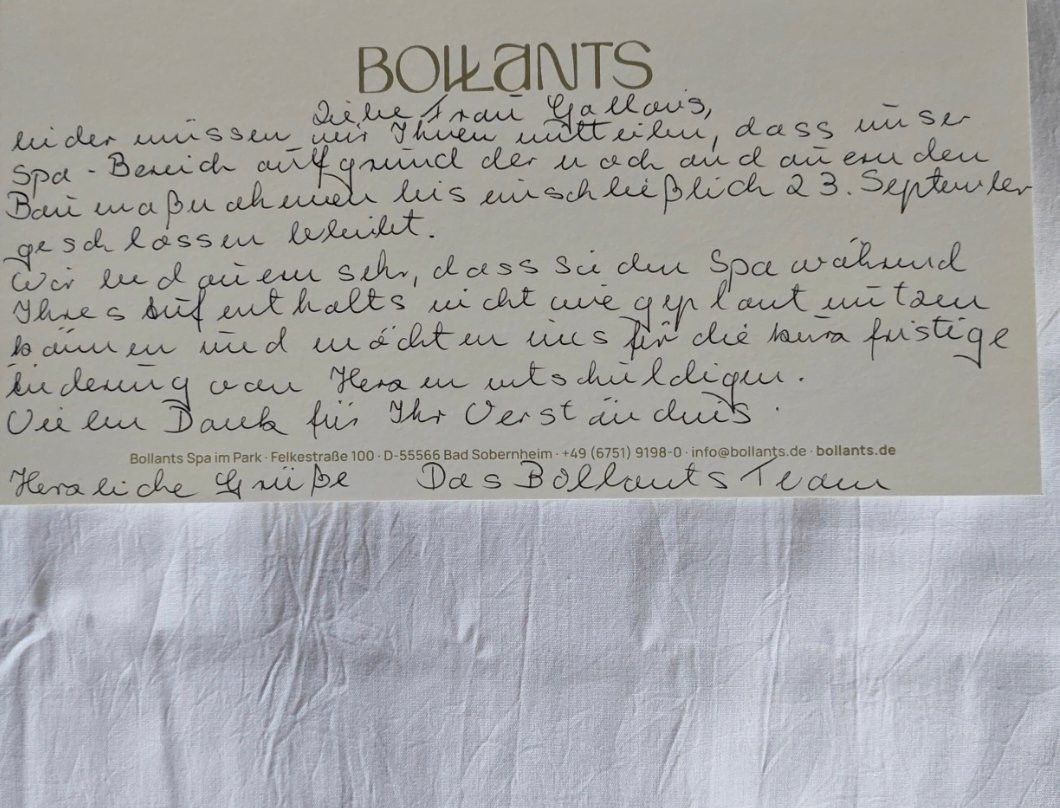 BOLLANTS
Liebe Frau Gallois,
leider müssen wir Ihnen mitteilen, dass unser
Spa-Bereich aufgrund der noch andauernden
Baumaßnahmen bis einschließlich 23. September
geschlossen bleibt.
Wir bedauern sehr, dass Sie den Spa während
Ihres Aufenthalts nicht wie geplant nutzen
können und möchten uns für die kurzfristige
Änderung von Herzen entschuldigen.
Vielen Dank für Ihr Verständnis.
Bollants Spa im Park · Felkestraße 100 · D-55566 Bad Sobernheim · +49 (6751) 9198-0 · info@bollants.de · bollants.de
Herzliche Grüße Das Bollants Team